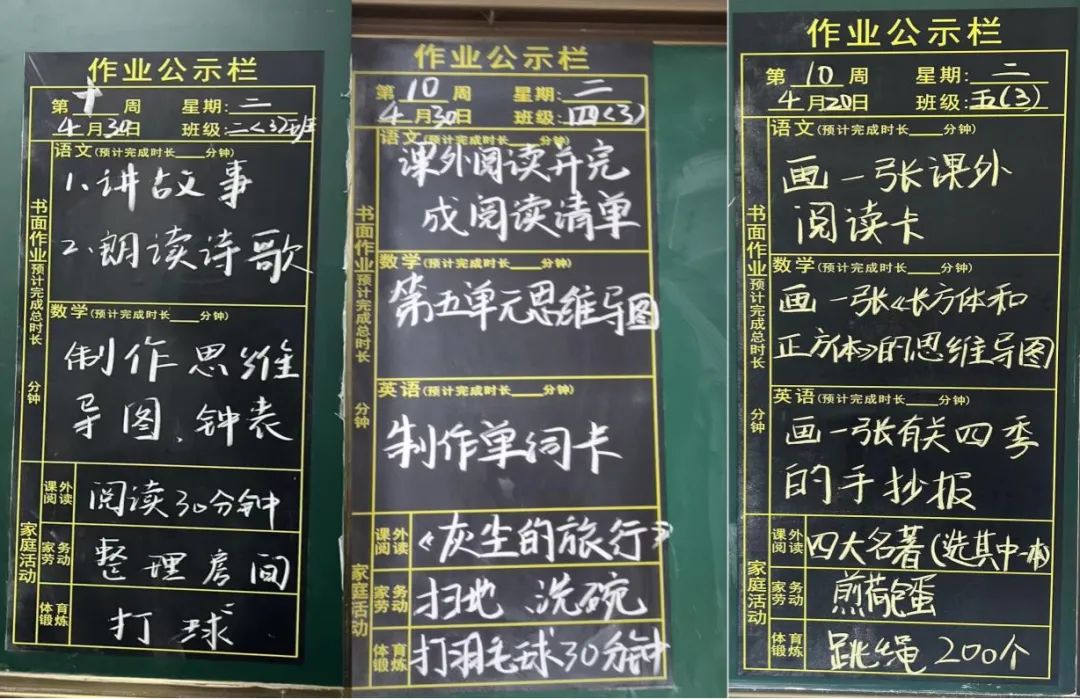 作业公示栏
第十周 星期:二
4月30日 班级:二(3)班
书面作业预计完成总时长 分钟
语文(预计完成时长____分钟)
1.讲故事
2.朗读诗歌
数学(预计完成时长____分钟)
制作思维
导图、钟表
家庭活动
课外阅读 阅读30分钟
家务劳动 整理房间
体育锻炼 打球
作业公示栏
第10周 星期:二
4月30日 班级:四(3)
书面作业预计完成总时长 分钟
语文(预计完成时长____分钟)
课外阅读并完
成阅读清单
数学(预计完成时长____分钟)
第五单元思维导图
英语(预计完成时长____分钟)
制作单词卡
家庭活动
课外阅读 《灰尘的旅行》
家务劳动 扫地、洗碗
体育锻炼 打羽毛球30分钟
作业公示栏
第10周 星期:二
4月20日 班级:五(3)
书面作业预计完成总时长 分钟
语文(预计完成时长____分钟)
画一张课外
阅读卡
数学(预计完成时长____分钟)
画一张《长方体和
正方体》的思维导图
英语(预计完成时长____分钟)
画一张有关四季
的手抄报
家庭活动
课外阅读 四大名著(选其中一本)
家务劳动 煎荷包蛋
体育锻炼 跳绳200个